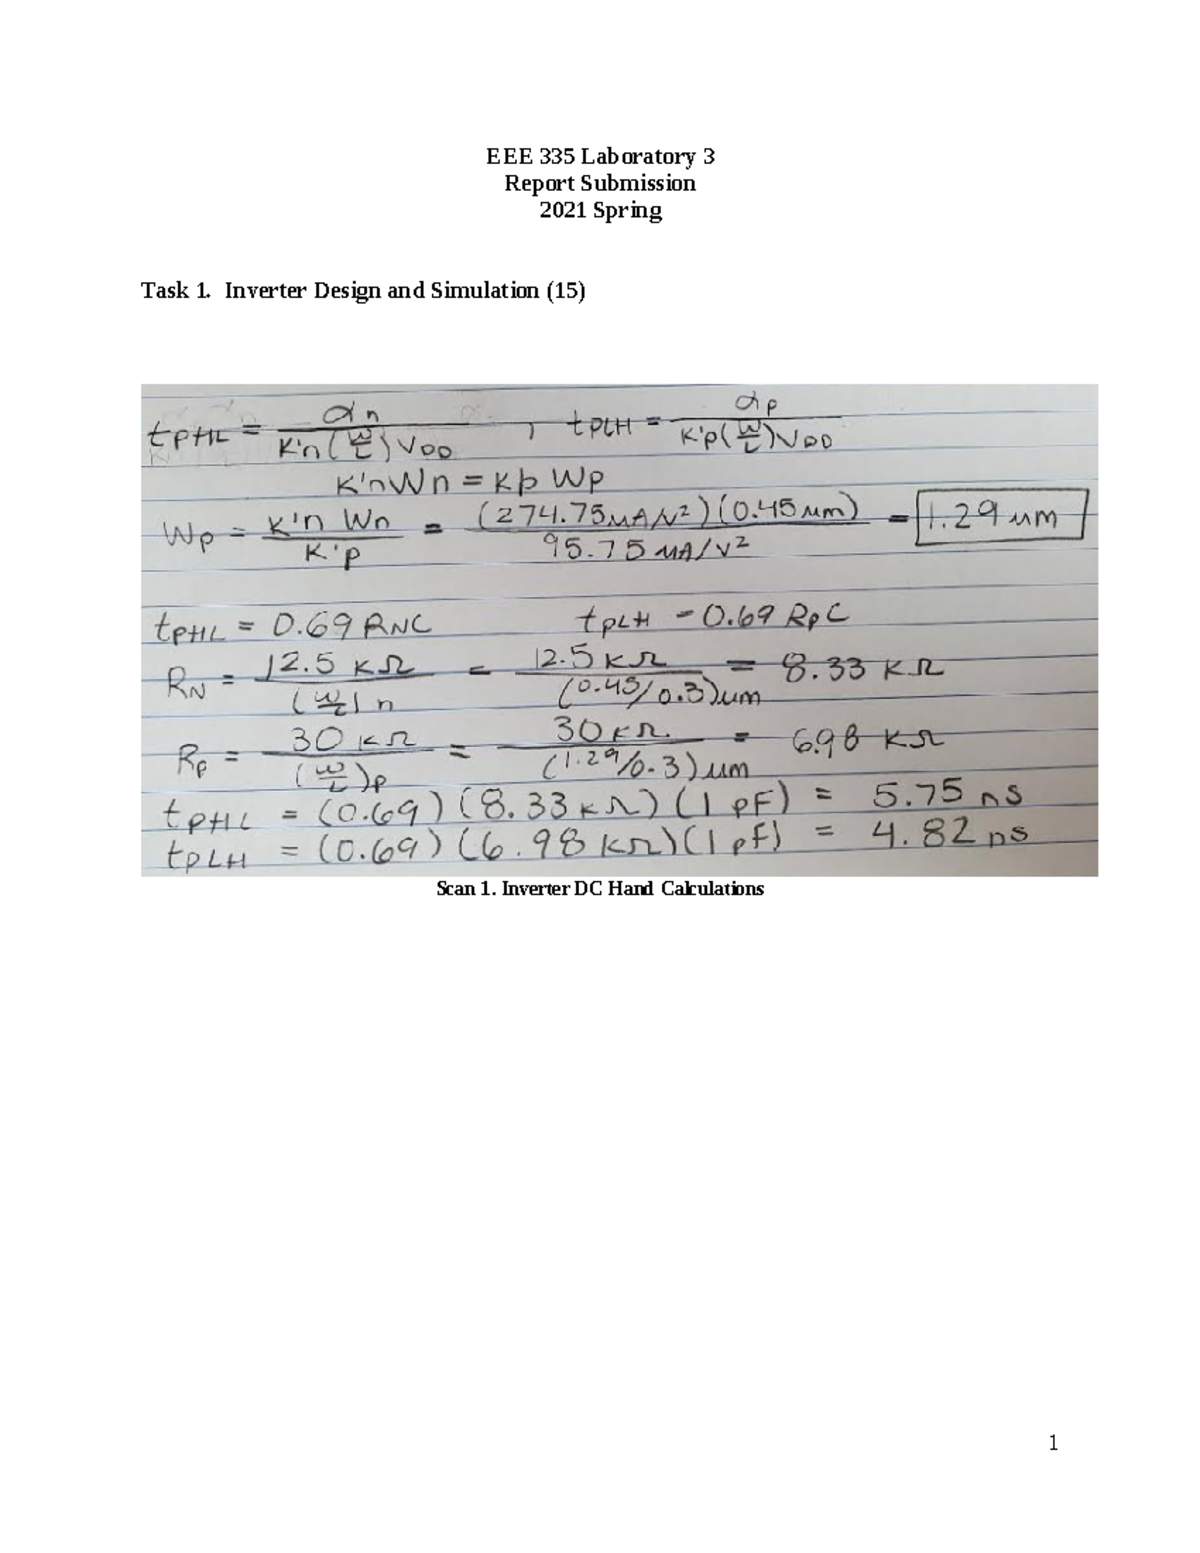 EEE 335 Laboratory 3
Report Submission
2021 Spring
Task 1. Inverter Design and Simulation (15)
tPHL = αn / K'n(W/L)VDD , tPLH = αp / K'p(W/L)VDD
K'nWn = Kp Wp
Wp = K'n Wn / K'p = (274.75 μA/V²)(0.45 μm) / 95.75 μA/V² = 1.29 μm
tPHL = 0.69 RNC tPLH = 0.69 RpC
RN = 12.5 KΩ / (W/L)n = 12.5 KΩ / (0.45/0.3)μm = 8.33 KΩ
Rp = 30 KΩ / (W/L)p = 30 KΩ / (1.29/0.3)μm = 6.98 KΩ
tPHL = (0.69)(8.33 KΩ)(1 pF) = 5.75 ns
tPLH = (0.69)(6.98 KΩ)(1 pF) = 4.82 ns
Scan 1. Inverter DC Hand Calculations
1